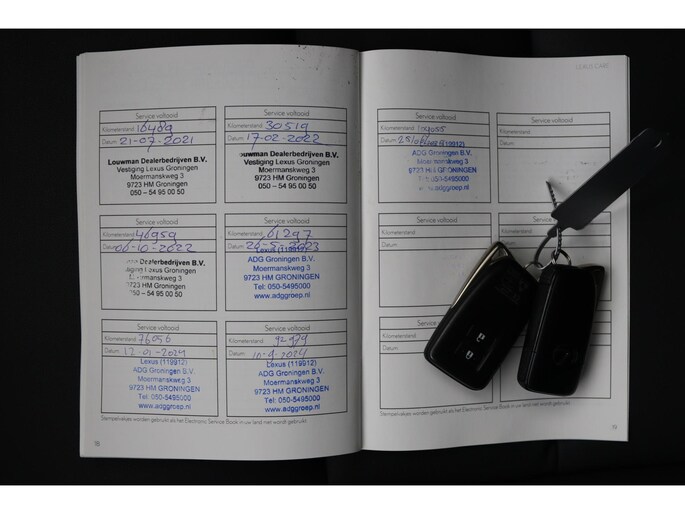 LEXUS CARE
Service voltooid
Kilometerstand 16489
Datum 21-07-2021
Louwman Dealerbedrijven B.V.
Vestiging Lexus Groningen
Moermanskweg 3
9723 HM Groningen
050 – 54 95 00 50
Service voltooid
Kilometerstand 30519
Datum 17-02-2022
Louwman Dealerbedrijven B.V.
Vestiging Lexus Groningen
Moermanskweg 3
9723 HM Groningen
050 – 54 95 00 50
Service voltooid
Kilometerstand 46959
Datum 06-10-2022
Dealerbedrijven B.V.
Lexus Groningen
Moermanskweg 3
9723 HM Groningen
050 – 54 95 00 50
Service voltooid
Kilometerstand 61297
Datum 26-5-2023
Lexus (119912)
ADG Groningen B.V.
Moermanskweg 3
9723 HM GRONINGEN
Tel: 050-5495000
www.adggroep.nl
Service voltooid
Kilometerstand 76056
Datum 12-01-2024
Lexus (119912)
ADG Groningen B.V.
Moermanskweg 3
9723 HM GRONINGEN
Tel: 050-5495000
www.adggroep.nl
Service voltooid
Kilometerstand
Datum
Lexus (119912)
ADG Groningen B.V.
Moermanskweg 3
9723 HM GRONINGEN
Tel: 050-5495000
www.adggroep.nl
Stempelvakjes worden gebruikt als het Electronic Service Book in uw land niet wordt gebruikt
18
Service voltooid
Kilometerstand
Datum
ADG Groningen B.V.
9723 HM GRONINGEN
Tel: 050-5495000
www.adggroep.nl
Service voltooid
Kilometerstand
Datum
Service voltooid
Kilometerstand
Datum
Service voltooid
Service voltooid
Kilometerstand
Datum
Stempelvakjes worden gebruikt als het Electronic Service Book in uw land niet wordt gebruikt
19